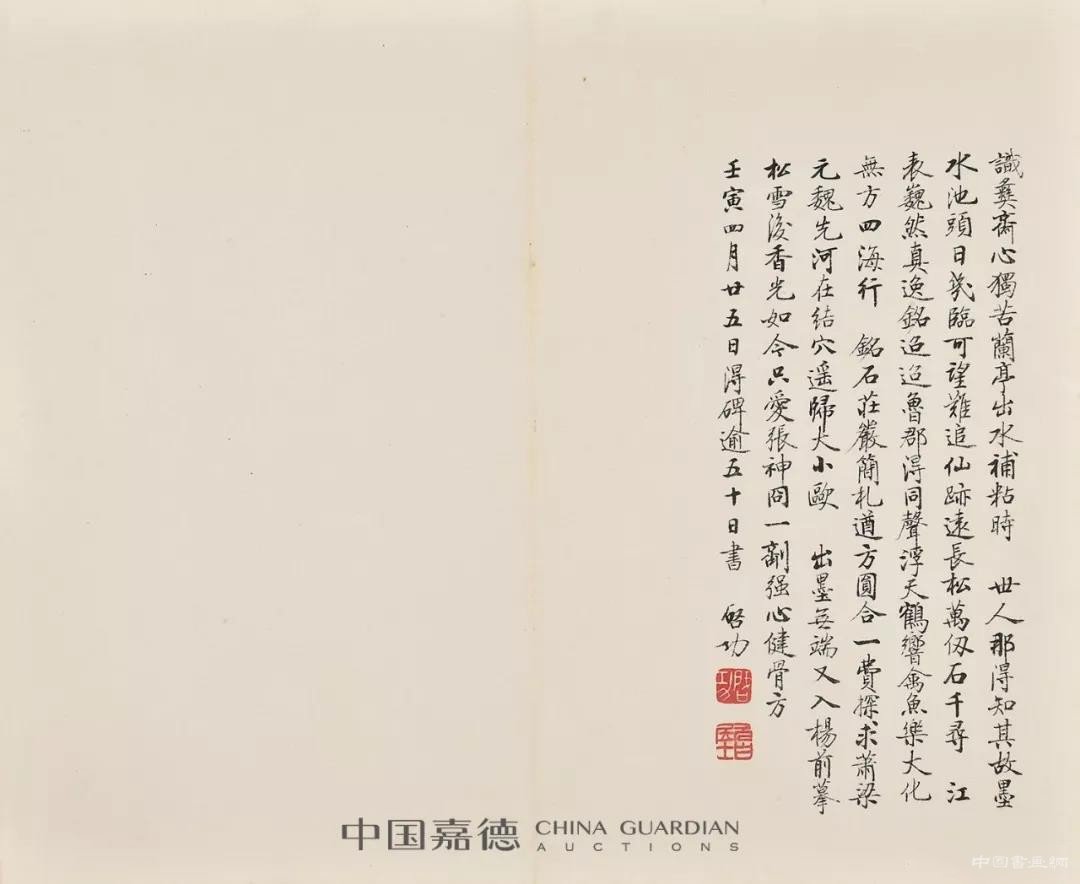 識彝齋心獨苦蘭亭出水補粘時 世人那得知其故墨
水池頭日幾臨可望難追仙跡遠長松萬仭石千尋 江
表巍然真逸銘迢迢魯郡得同聲浮天鶴響禽魚樂大化
無方四海行 銘石莊嚴簡札遒方圓合一費探求蕭梁
元魏先河在結穴遥歸大小歐 出墨無端又入楊前摹
松雪後香光如今只愛張神冏一劑强心健骨方
壬寅四月廿五日得碑逾五十日書 啓功
啓功
中国嘉德 CHINA GUARDIAN
AUCTIONS
中国书画網